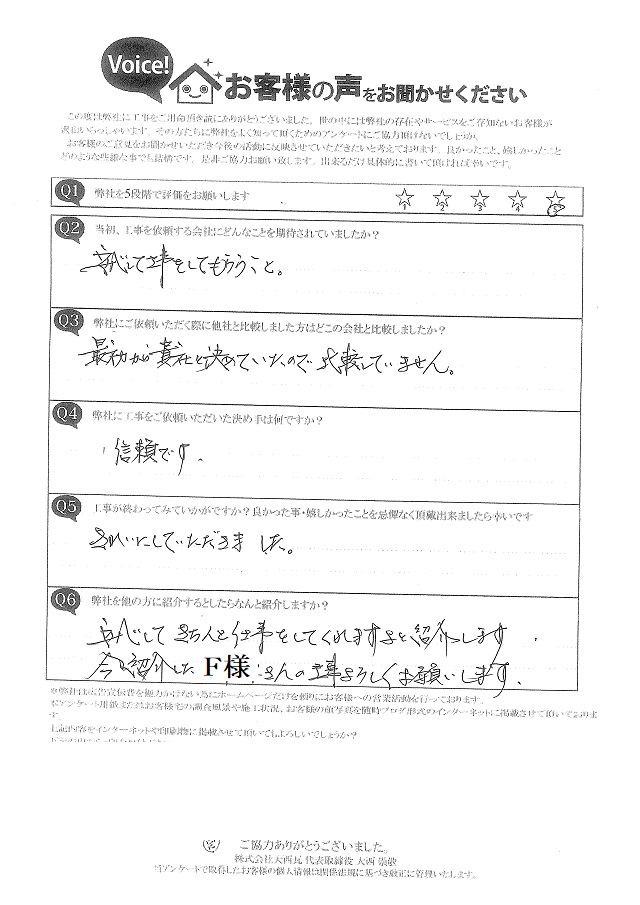 Voice!
お客様の声をお聞かせください
この度は弊社に工事をご用命頂き誠にありがとうございました。世の中には弊社の存在やサービスをご存知ないお客様が
沢山いらっしゃいます。その方たちに弊社をよく知って頂くためのアンケートにご協力頂けないでしょうか。
お客様のご意見をお聞かせいただき今後の活動に反映させていただきたいと考えております。良かったこと、嬉しかったこと
どのような些細な事でも結構です。是非ご協力お願い致します。出来るだけ具体的に書いて頂ければ幸いです。
Q1 弊社を5段階で評価をお願いします
1 2 3 4 5
Q2 当初、工事を依頼する会社にどんなことを期待されていましたか？
安心して工事をしてもらうこと。
Q3 弊社にご依頼いただく際に他社と比較しました方はどこの会社と比較しましたか？
最初から貴社と決めていたので比較していません。
Q4 弊社に工事をご依頼いただいた決め手は何ですか？
信頼です。
Q5 工事が終わってみていかがですか？良かった事・嬉しかったことを忌憚なく頂戴出来ましたら幸いです
きれいにしていただきました。
Q6 弊社を他の方に紹介するとしたらなんと紹介しますか？
安心してきちんと仕事をしてくれますよと紹介します。
紹介した F様 さんの工事よろしくお願いします。
※弊社は広告宣伝費を極力かけない為にホームページだけを頼りにお客様への営業活動を行っております。
本アンケート用紙またはお客様宅の調査風景や施工状況、お客様の顔写真を随時ブログ形式のインターネットに掲載させて頂いておりま
す。
上記内容をインターネットや印刷物に掲載させて頂いてもよろしいでしょうか？
ご協力ありがとうございました。
株式会社大西瓦 代表取締役 大西 崇敬
当アンケートで取得したお客様の個人情報は関係法規に基づき厳正に管理いたします。